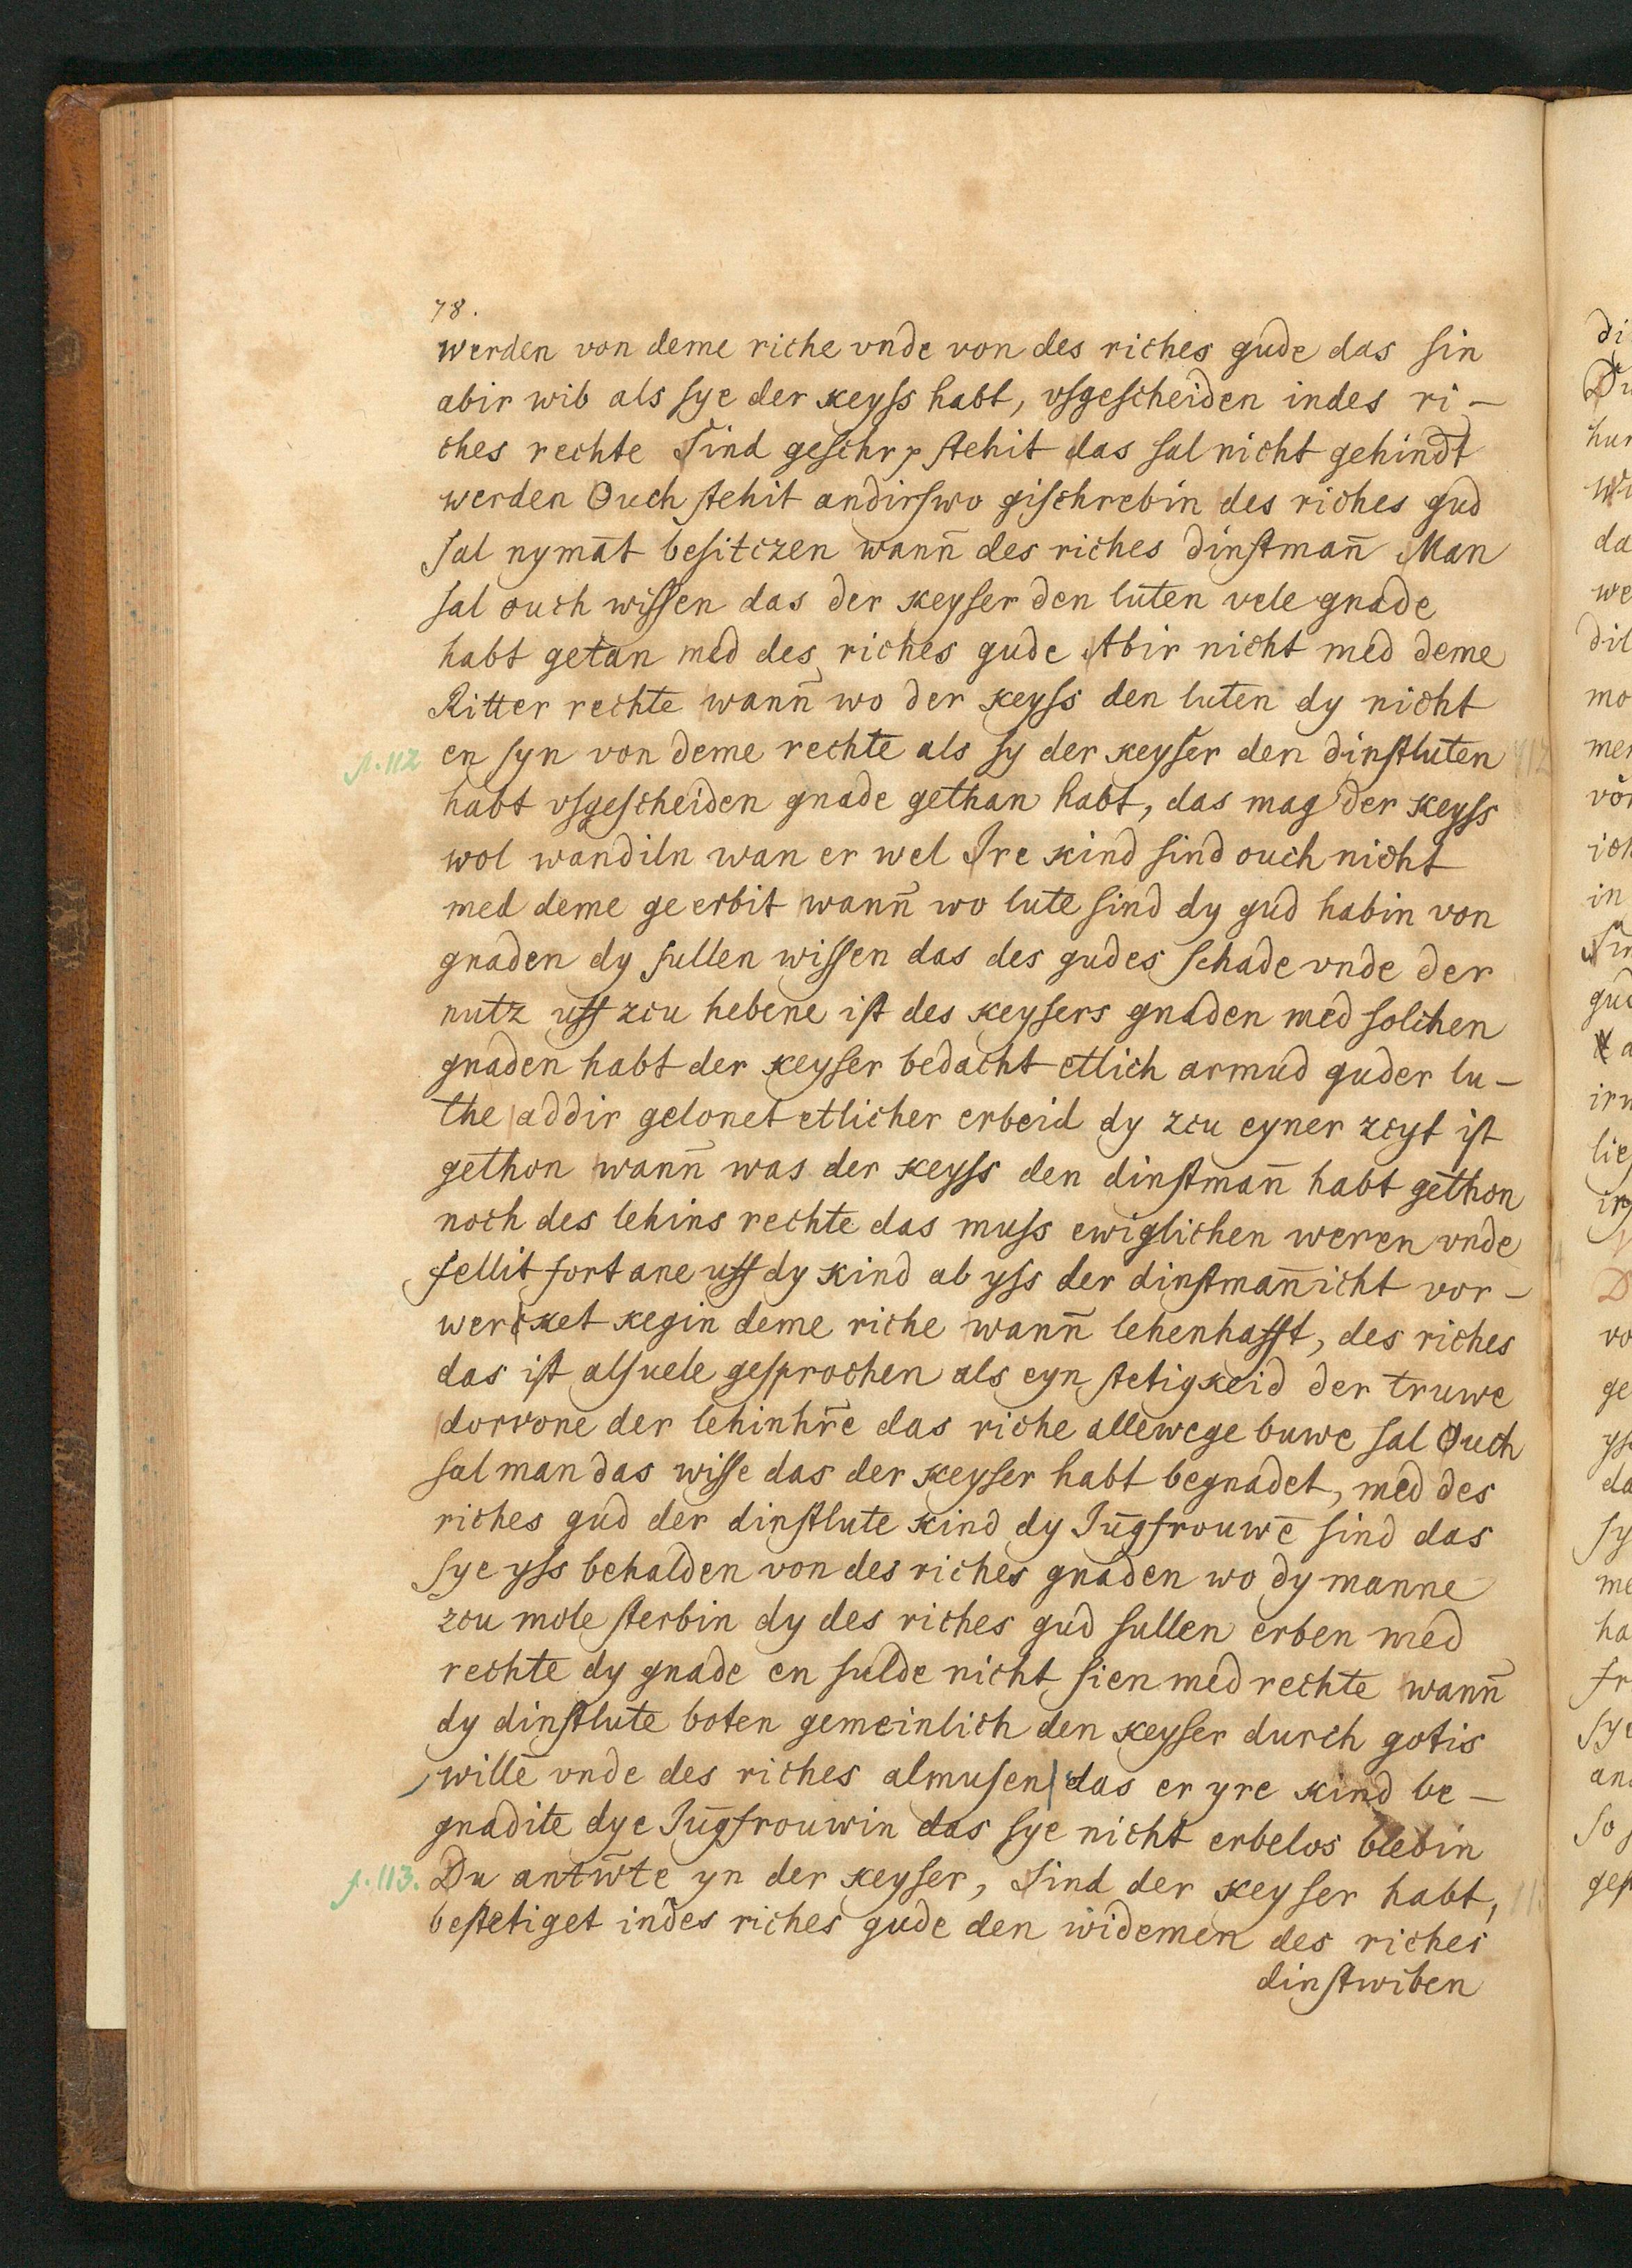 78.
werden von deme riche vnde von des riches gude das sin
abir wib als sye der keyss habt, vsgescheiden indes ri-
ches rechte Sind geschr stehit das sal nicht gehindt
werden Ouch stehit andirswo gischrebin des riches gud
sal nymāt besitczen wann̄ des riches dinstman̄ Man
sal ouch wissen das der keyser den luten vele gnade
habt getan med des riches gude Abir nicht med deme
Ritter rechte wann̄ wo der keyss den luten dy nicht
f. 112 en syn von deme rechte als sy der keyser den dinstluten
habt vsgescheiden gnade gethan habt, das mag der keyss
wol wandiln wan er wel Ire kind sind ouch nicht
med deme ge erbit wann̄ wo lute sind dy gud habin von
gnaden dy sullen wissen das des gudes schade vnde der
nutz uff zcu hebene ist des keysers gnaden med solchen
gnaden habt der keyser bedacht etlich armud guder lu-
the addir gelonet etlicher erbeid dy zcu eyner zcyt ist
gethon wann̄ was der keyss den dinstman̄ habt gethon
noch des lehins rechte das muss ewiglichen weren vnde
fellit fort ane uff dy kind ab yss der dinstman̄ icht vor-
wercket kegin deme riche wann̄ lehenhafft, des riches
das ist alsuele gesprochen als eyn stetigkeid der truwe
dorvone der lehinhr̄e das riche allewege buwe sal Ouch
sal man das wisse das der keyser habt begnadet, med des
riches gud der dinstlute kind dy Jūgfrouwē sind das
sye yss behalden von des riches gnaden wo dy manne
zcu mole sterbin dy des riches gud sullen erben med
rechte dy gnade en sulde nicht sien med rechte wann̄
dy dinstlute boten gemeinlich den keyser durch gotis
willē vnde des riches almusen das er yre kind be-
gnadite dye Jūgfrouwin das sye nicht erbelos blebin
f. 113. Du antw̄te yn der keyser, Sind der keyser habt,
bestetiget indes riches gude den widemen des riches
dinstwiben